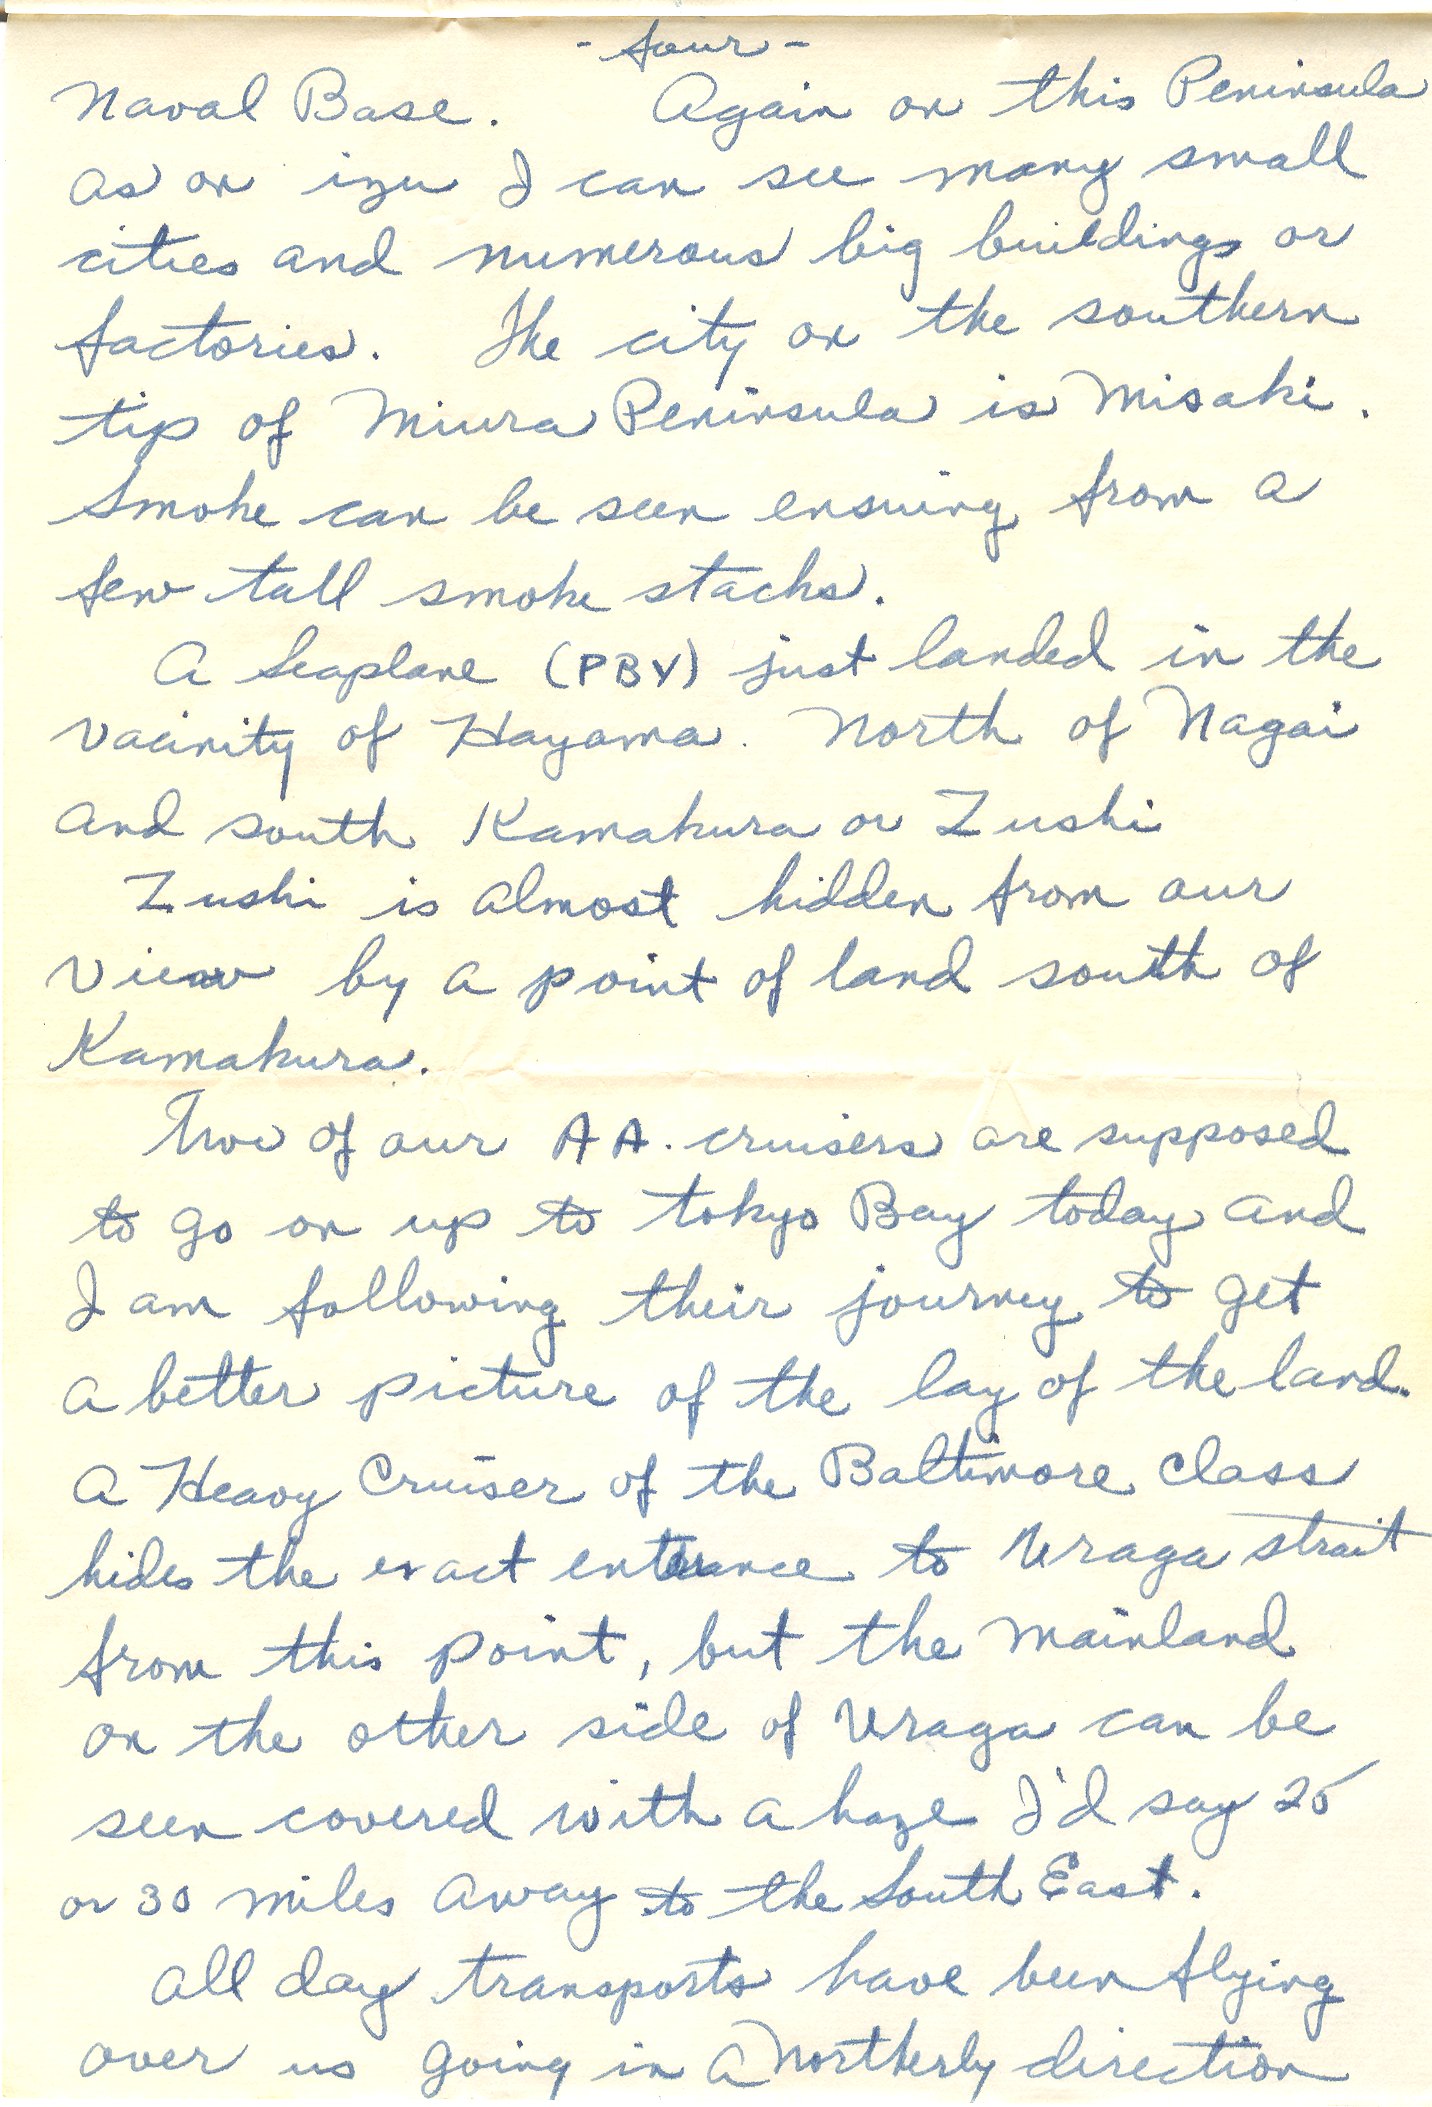 - four -
Naval Base. Again on this Peninsula
as on izu I can see many small
cities and numerous big buildings or
factories. The city on the southern
tip of Miura Peninsula is Misaki.
Smoke can be seen ensuing from a
few tall smoke stacks.
A Seaplane (PBY) just landed in the
vacinity of Hayama. North of Nagai
and south Kamakura or Zushi
Zushi is almost hidden from our
view by a point of land south of
Kamakura.
Two of our A A. cruisers are supposed
to go on up to Tokyo Bay today and
I am following their journey to get
a better picture of the lay of the land.
A Heavy Cruiser of the Baltimore class
hides the exact enterance to Uraga strait
from this point, but the mainland
on the other side of Uraga can be
seen covered with a haze I'd say 25
or 30 miles away to the South East.
All day transports have been flying
over us going in a Northerly direction